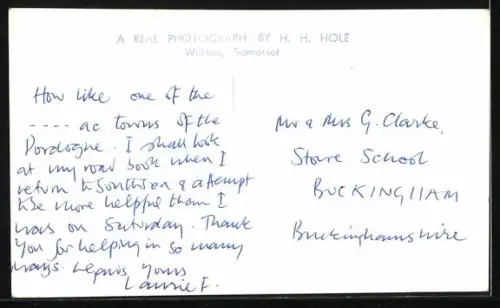 A REAL PHOTOGRAPH BY H. H. HOLE
Williton, Somerset
How like one of the
---- ac towns of the
Dordogne. I shall look
at my road book when I
return to Southsea & attempt
to be more helpful than I
was on Saturday. Thank
you for helping in so many
ways. yours
Laurie F.
Mr & Mrs G. Clarke,
Stowe School
BUCKINGHAM
Buckinghamshire